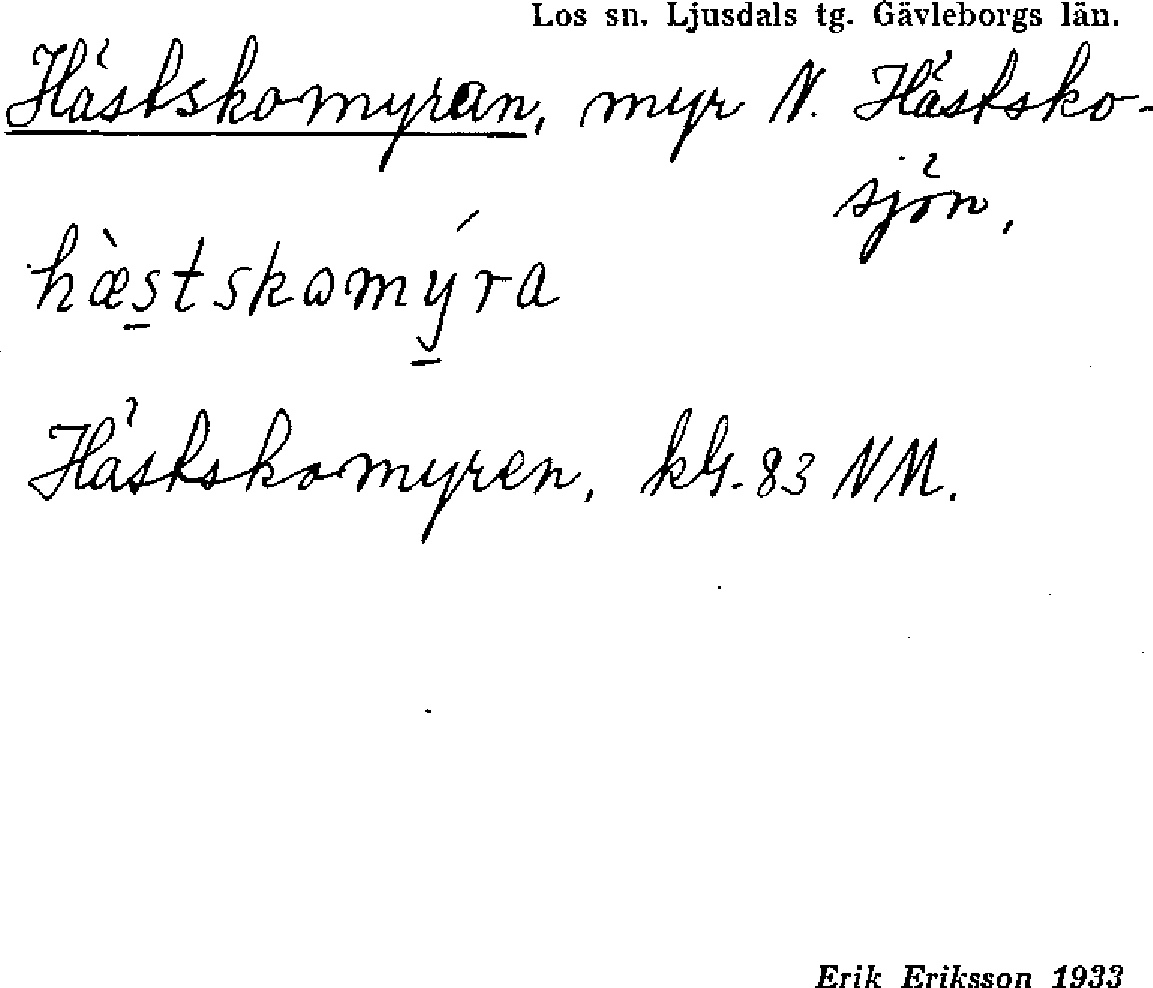 Los sn. Ljusdals tg. Gävleborgs län.
Hästskomyran, myr N. Hästsko-
sjön.
hæ̀stskωmýra
Hästskomyren, kG. 83 NM.
Erik Eriksson 1933